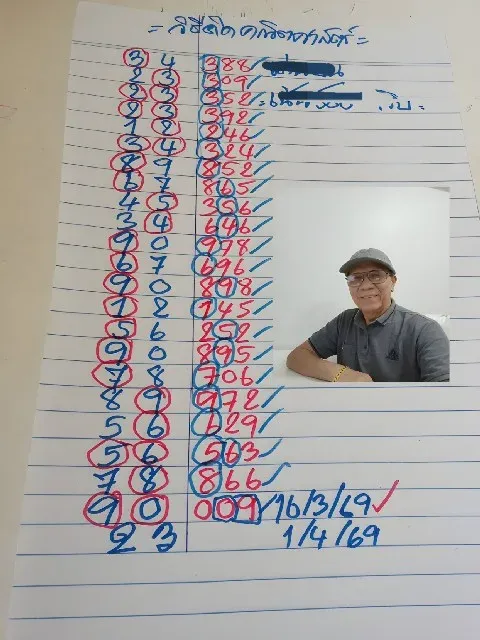 = วิธีคิดคณิตศาสตร์ =
3 4 388 ✓
2 3 309 ✓
2 3 352 ✓
2 3 392 ✓
1 2 246 ✓
3 4 324 ✓
8 9 852 ✓
6 7 865 ✓
4 5 356 ✓
3 4 646 ✓
9 0 978 ✓
6 7 696 ✓
9 0 898 ✓
1 2 145 ✓
5 6 252 ✓
9 0 895 ✓
7 8 706 ✓
8 9 972 ✓
5 6 629 ✓
5 6 563 ✓
7 8 866 ✓
9 0 009 ✓ 16/3/69 ✓
2 3 1/4/69